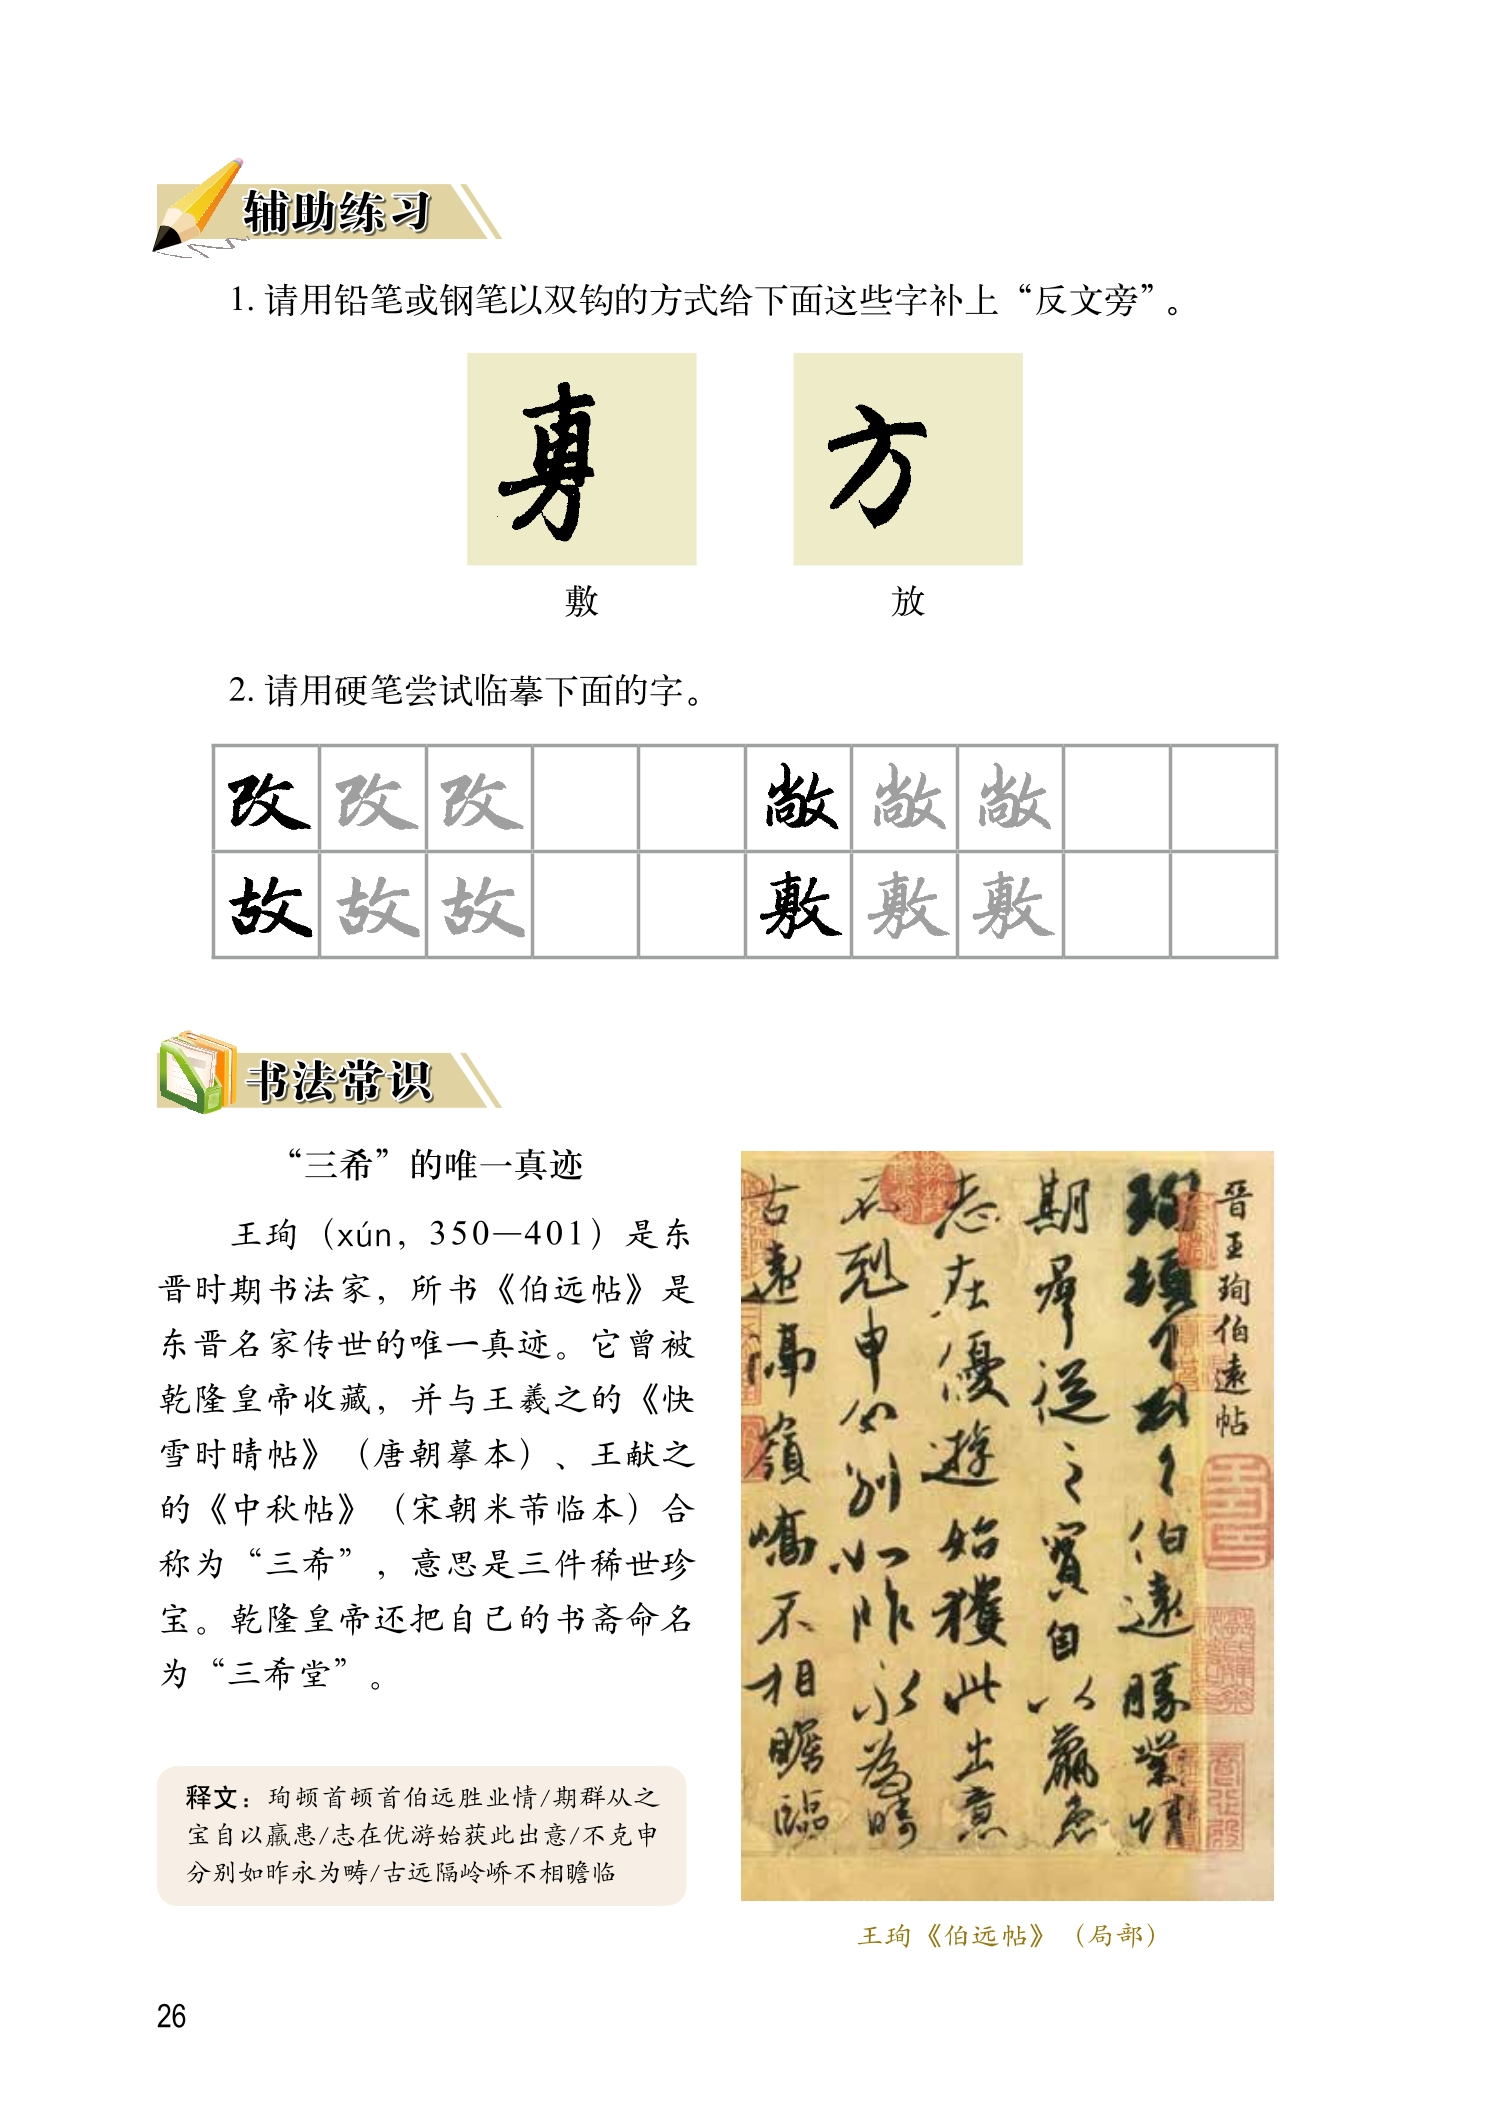 辅助练习
1. 请用铅笔或钢笔以双钩的方式给下面这些字补上“反文旁”。
方
敷
放
2. 请用硬笔尝试临摹下面的字。
改 改 改 敞 敞 敞
故 故 故 敷 敷 敷
书法常识
“三希”的唯一真迹
王珣（xún，350—401）是东
晋时期书法家，所书《伯远帖》是
东晋名家传世的唯一真迹。它曾被
乾隆皇帝收藏，并与王羲之的《快
雪时晴帖》（唐朝摹本）、王献之
的《中秋帖》（宋朝米芾临本）合
称为“三希”，意思是三件稀世珍
宝。乾隆皇帝还把自己的书斋命名
为“三希堂”。
释文：珣顿首顿首伯远胜业情/期群从之
宝自以羸患/志在优游始获此出意/不克申
分别如昨永为畴/古远隔岭峤不相瞻临
晋王珣伯遠帖
珣頓首頓首伯遠勝業情
期群從之寶自以羸患
志在優遊始獲此出意
不剋申分別如昨永為疇
古遠隔嶺嶠不相瞻臨
王珣《伯远帖》（局部）
26